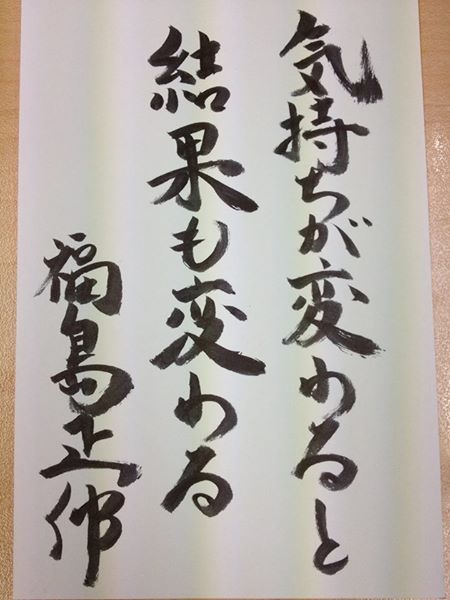 気持ちが変わると
結果も変わる
福島正伸